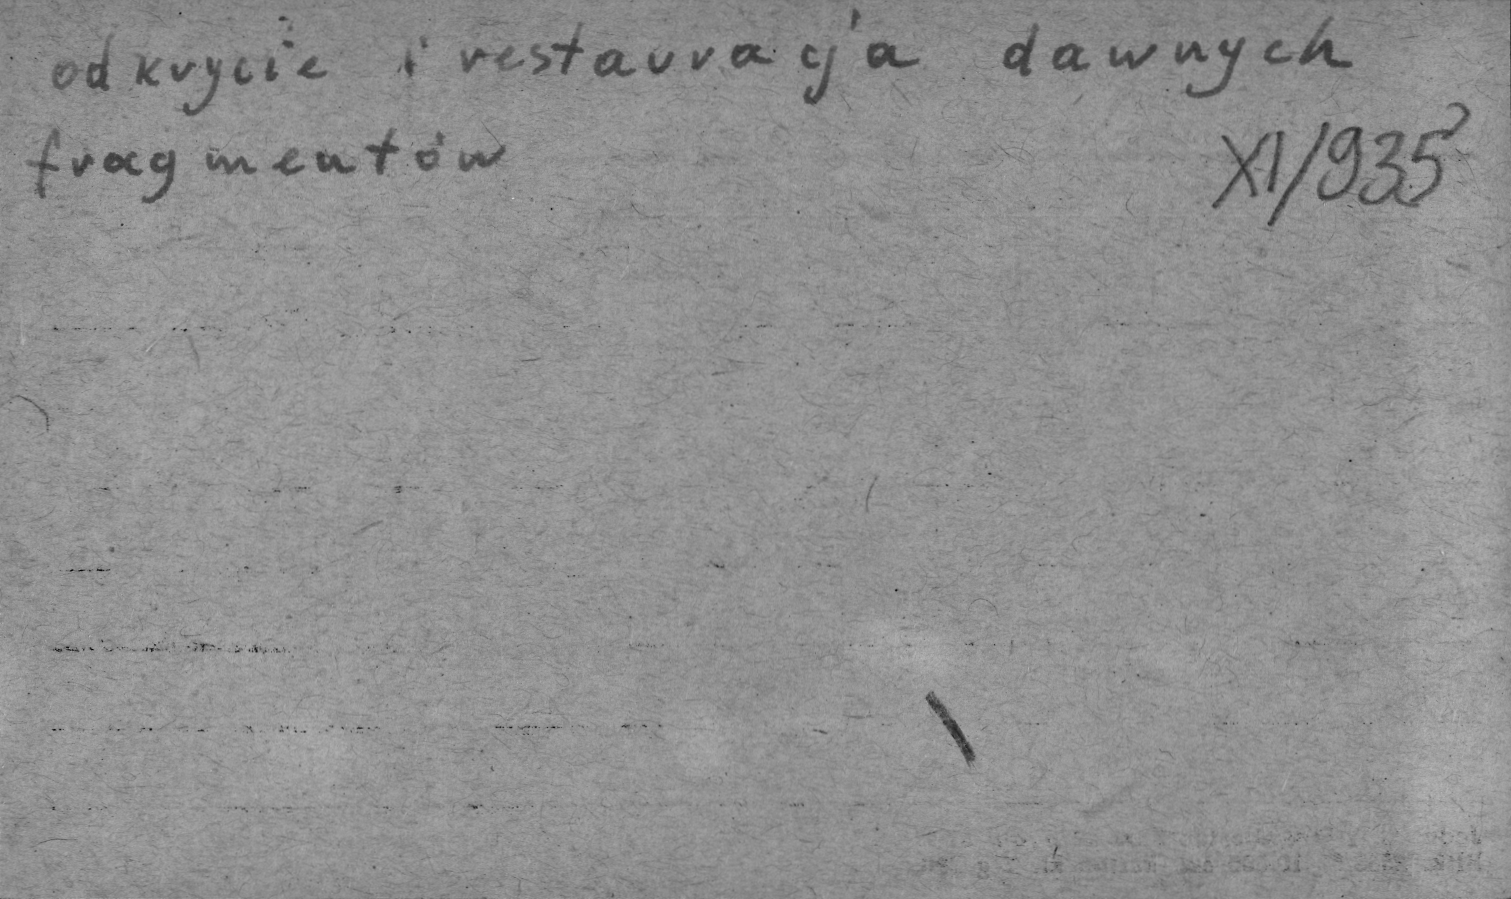 odkrycie i restauracja dawnych
fragmentów
XI/935